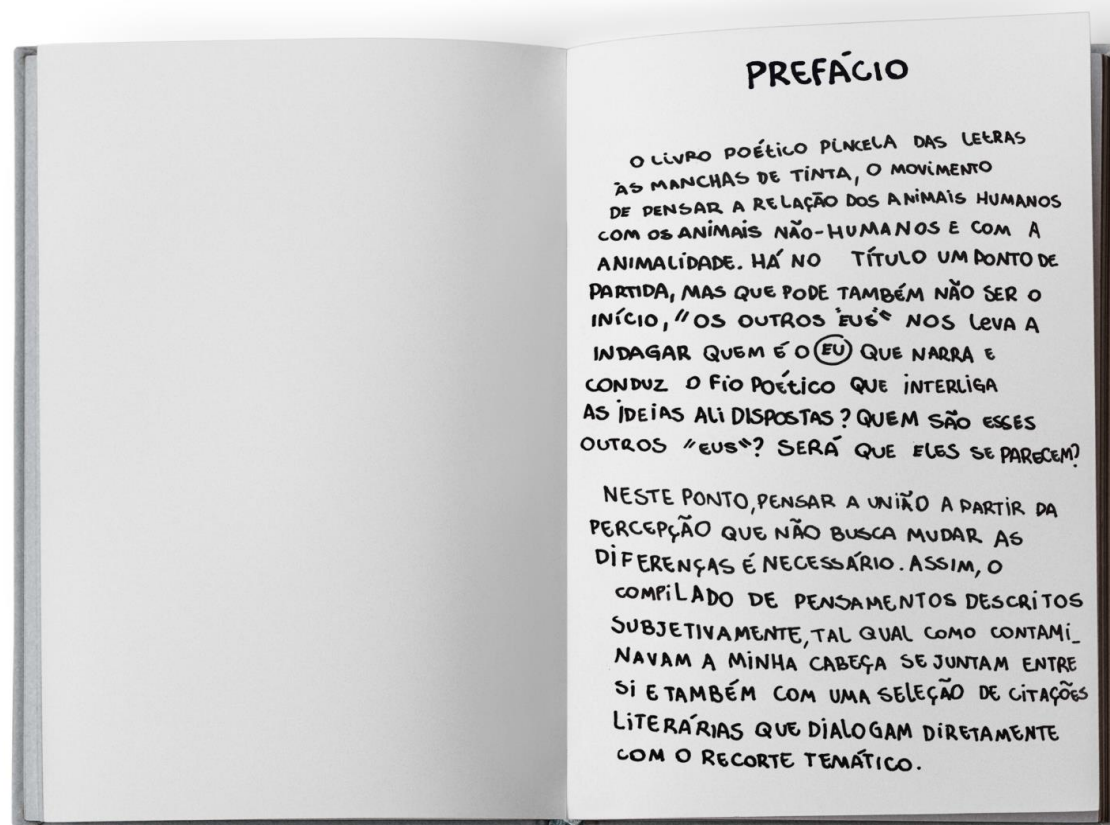 PREFÁCIO
O LIVRO POÉTICO PINCELA DAS LETRAS
ÀS MANCHAS DE TINTA, O MOVIMENTO
DE PENSAR A RELAÇÃO DOS ANIMAIS HUMANOS
COM OS ANIMAIS NÃO-HUMANOS E COM A
ANIMALIDADE. HÁ NO TÍTULO UM PONTO DE
PARTIDA, MAS QUE PODE TAMBÉM NÃO SER O
INÍCIO, "OS OUTROS 'EUS'" NOS LEVA A
INDAGAR QUEM É O EU QUE NARRA E
CONDUZ O FIO POÉTICO QUE INTERLIGA
AS IDEIAS ALI DISPOSTAS? QUEM SÃO ESSES
OUTROS "EUS"? SERÁ QUE ELES SE PARECEM?
NESTE PONTO, PENSAR A UNIÃO A PARTIR DA
PERCEPÇÃO QUE NÃO BUSCA MUDAR AS
DIFERENÇAS É NECESSÁRIO. ASSIM, O
COMPILADO DE PENSAMENTOS DESCRITOS
SUBJETIVAMENTE, TAL QUAL COMO CONTAMI_
NAVAM A MINHA CABEÇA SE JUNTAM ENTRE
SI E TAMBÉM COM UMA SELEÇÃO DE CITAÇÕES
LITERÁRIAS QUE DIALOGAM DIRETAMENTE
COM O RECORTE TEMÁTICO.